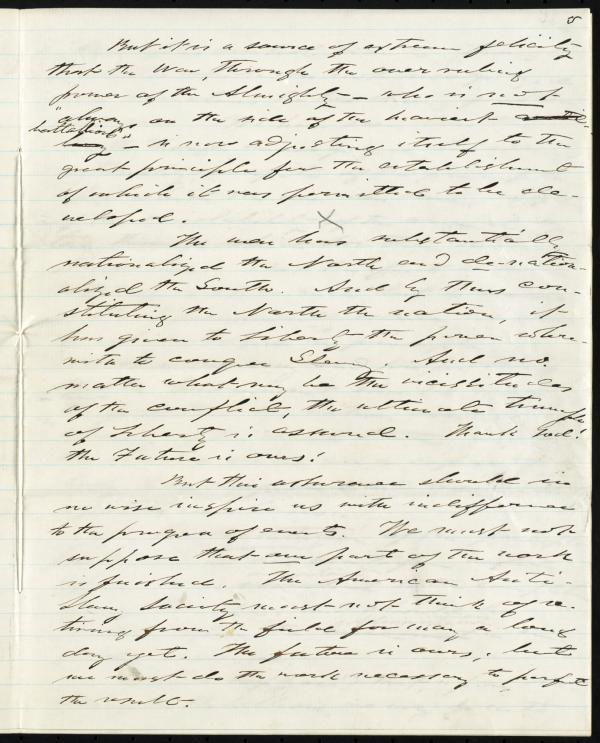 5
But it is a source of extreme felicity
that the War, through the overruling
power of the Almighty — who is not
"always on the side of the heaviest
battalions" — is now adjusting itself to the
great principle for the establishment
of which it was permitted to be de-
veloped.
X
The war has substantially
nationalized the North and de-nation-
alized the South. And by thus con-
stituting the North the nation, it
has given to Liberty the power where-
with to conquer Slavery. And no
matter what may be the vicissitudes
of the conflict, the ultimate triumph
of Liberty is assured. Thank God!
the Future is ours!
But this assurance should in
no wise inspire us with indifference
to the progress of events. We must not
suppose that our part of the work
is finished. The American Anti-
Slavery Society must not think of re-
tiring from the field for many a long
day yet. The future is ours, but
we must do the work necessary to perfect
the result.